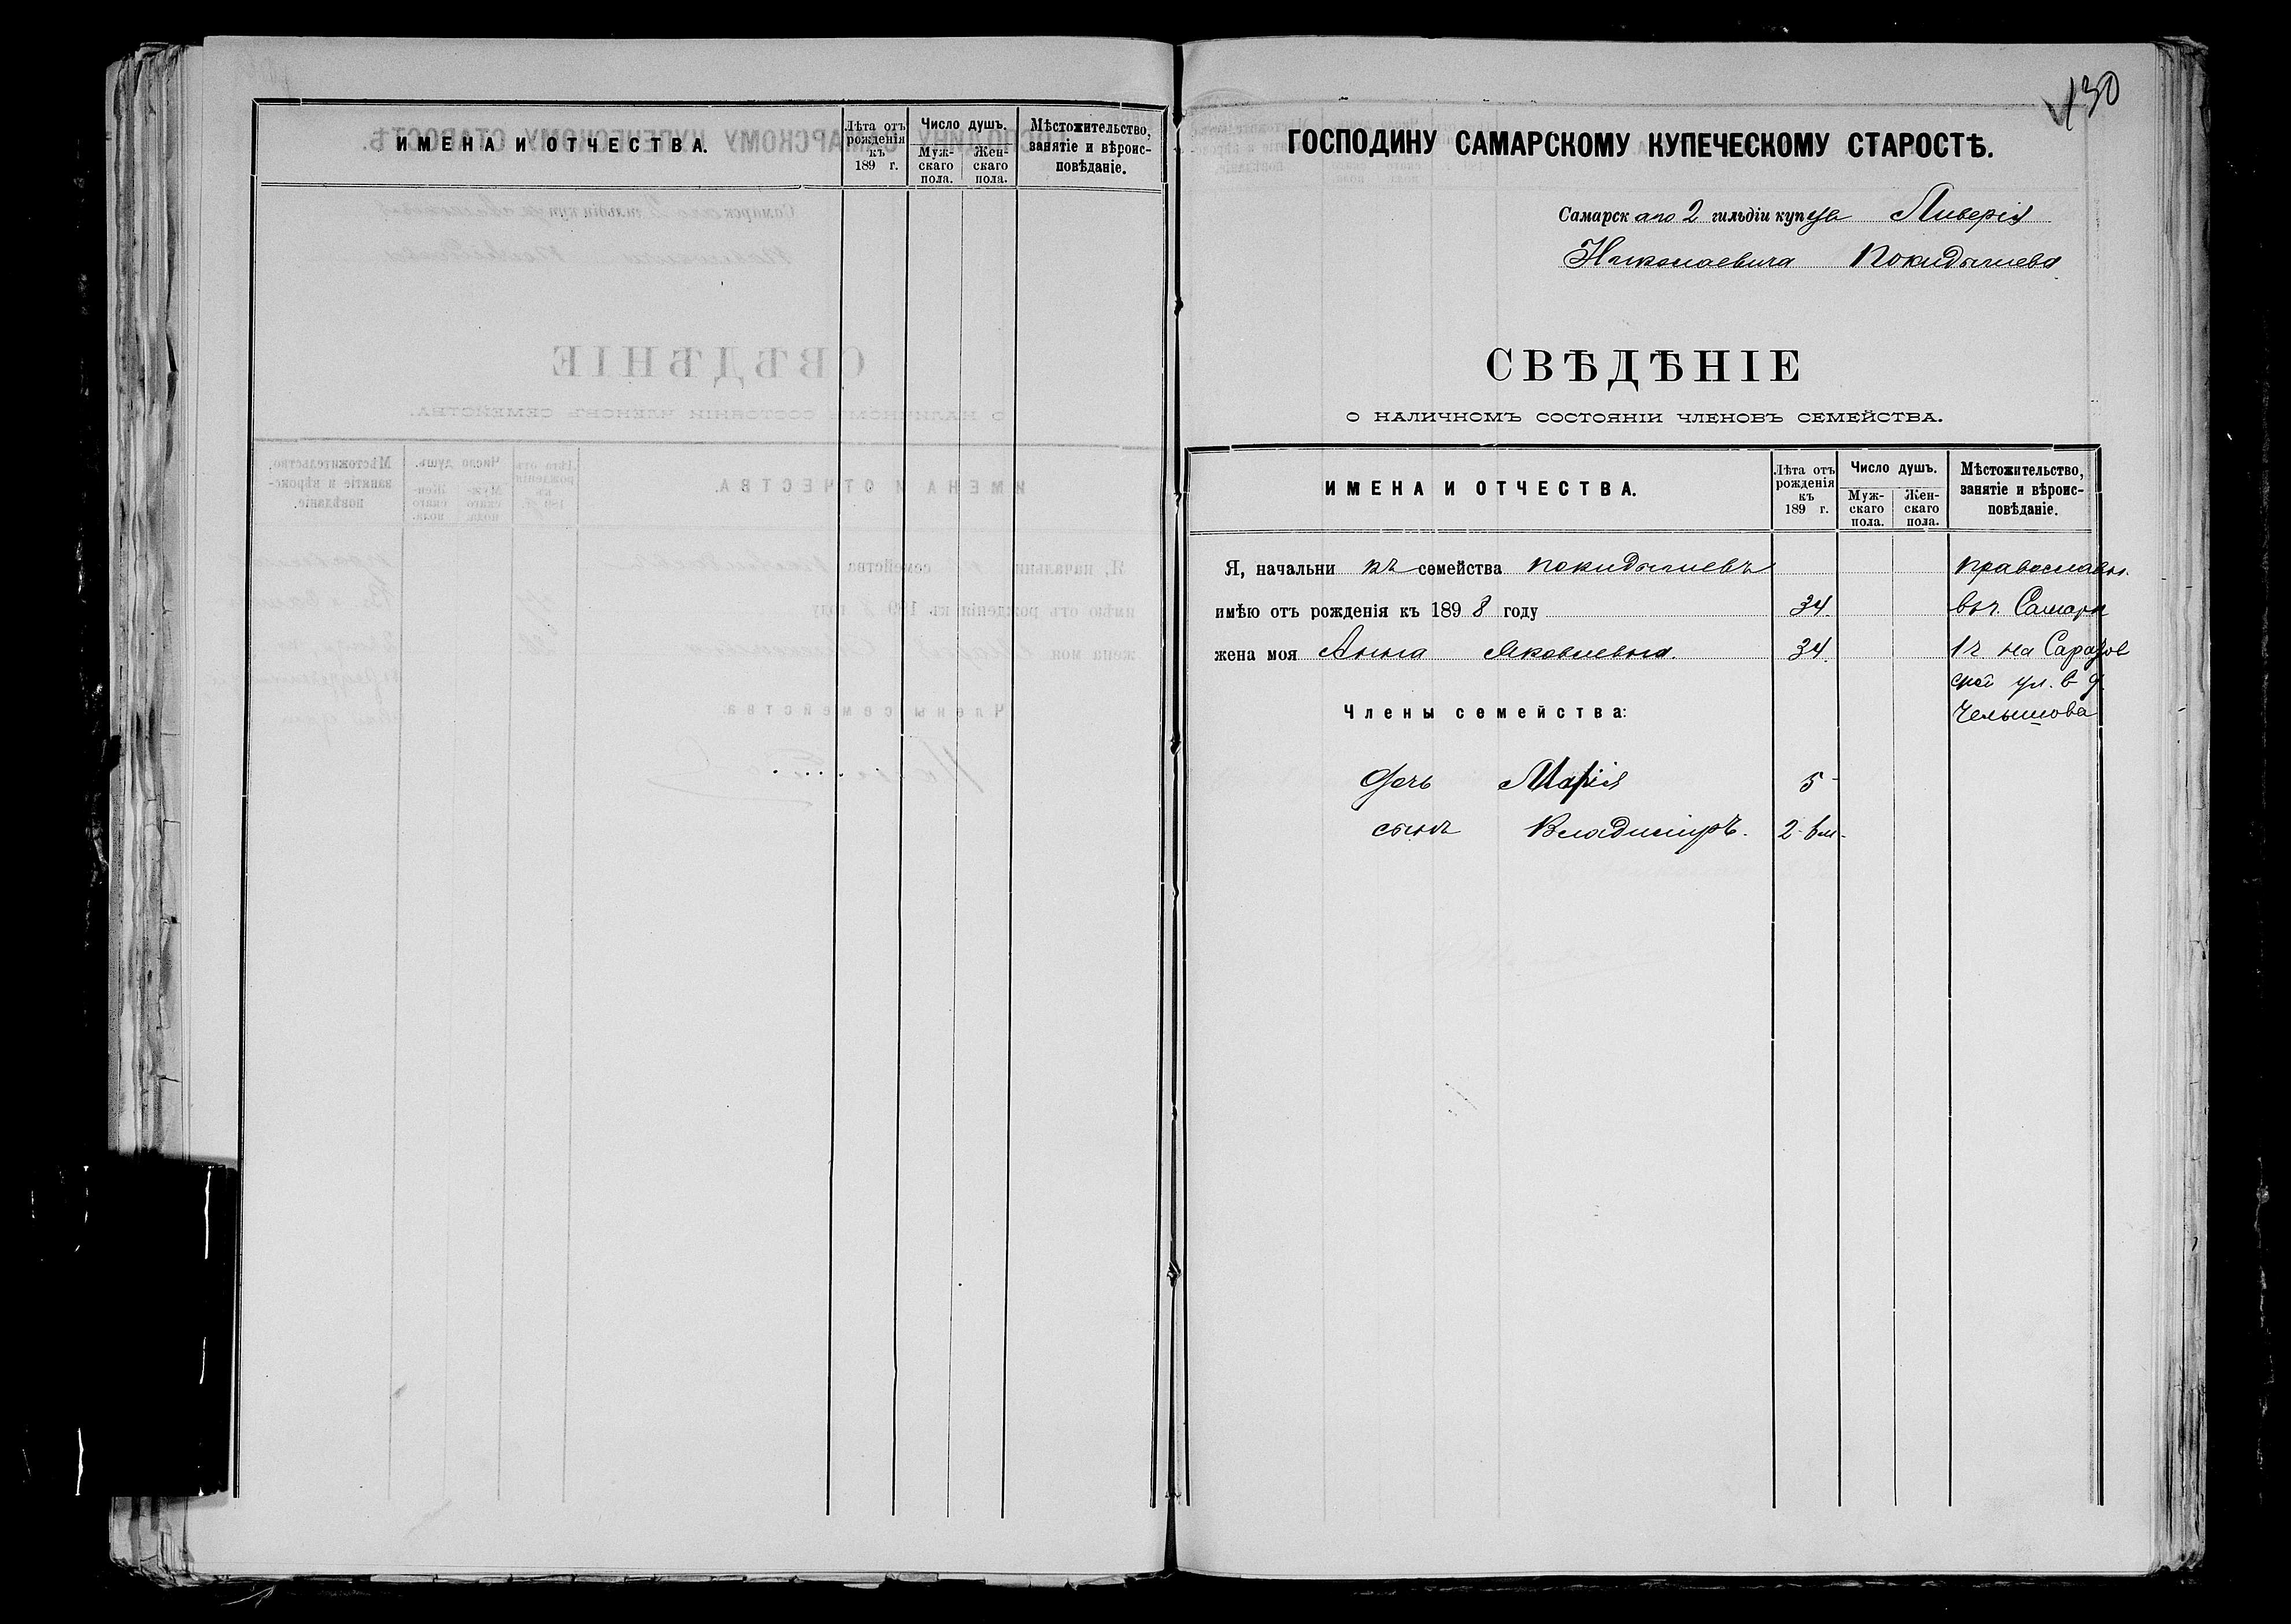 ИМЕНА И ОТЧЕСТВА.
Лѣта отъ рожденія къ 189 г.
Число душъ.
Мужскаго пола.
Женскаго пола.
Мѣстожительство, занятіе и вѣроисповѣданіе.
130
ГОСПОДИНУ САМАРСКОМУ КУПЕЧЕСКОМУ СТАРОСТѢ.
Самарскаго 2 гильдіи купца Ливерія
Николаевича Покидышева
СВѢДѢНІЕ
О НАЛИЧНОМЪ СОСТОЯНІИ ЧЛЕНОВЪ СЕМЕЙСТВА.
ИМЕНА И ОТЧЕСТВА.
Лѣта отъ рожденія къ 189 г.
Число душъ.
Мужскаго пола.
Женскаго пола.
Мѣстожительство, занятіе и вѣроисповѣданіе.
Я, начальникъ семейства Покидышевъ православн.
имѣю отъ рожденія къ 1898 году 34 въ г. Самарѣ
жена моя Анна Яковлевна. 34. на Саратов
ской ул. в д.
Члены семейства: Челышова
дочь Марія 5
сынъ Владиміръ. 2